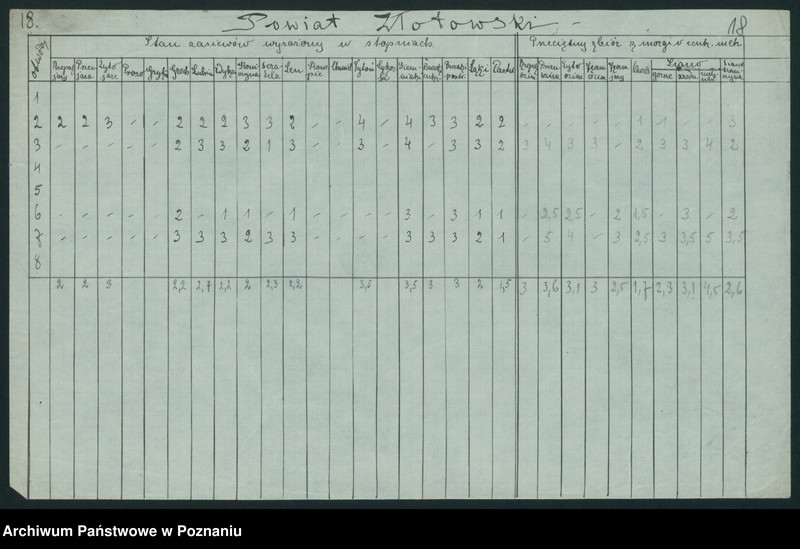 18. Powiat Złotowski. - 18
Stan zasiewów wyrażony w stopniach Przeciętny zbiór z morga w centn. metr.
Proso Gryka Groch Lubin Wyka Koniczyna Seradela Len Konopie Chmiel Tytoń Ziemniaki Łąki Pastw. Siano
górne
1
2 2 2 3 - - 2 2 2 3 3 2 - - 4 - 4 3 3 2 2 - - - - - 1 1 - - 3
3 - - - - - 2 3 3 2 1 3 - - 3 - 4 - 3 3 2 3 4 3 3 - 2 3 3 4 2
4
5
6 - - - - - 2 - 1 1 - 1 - - - - 3 - 3 1 1 - 2,5 2,5 - 2 1,5 - 3 - 2
7 - - - - - 3 3 3 2 3 3 3 3 3 2 1 - 5 4 - 3 2,5 3 3,5 5 3,5
8
2 2 3 2,2 2,7 2,2 2 2,3 2,2 3,5 3,5 3 3 2 1,5 3 3,6 3,1 3 2,5 1,7 2,3 3,1 4,5 2,6
Archiwum Państwowe w Poznaniu